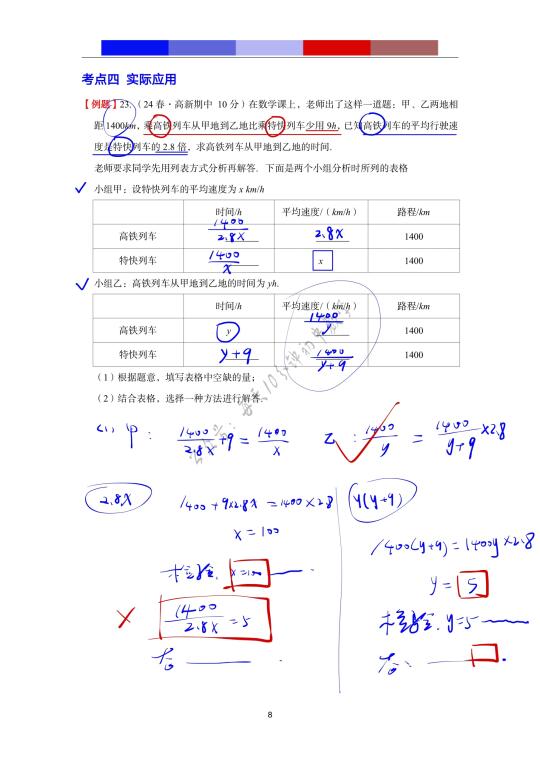 考点四 实际应用
【例题】23.（24 春·高新期中 10 分）在数学课上，老师出了这样一道题：甲、乙两地相
距 1400km，乘高铁列车从甲地到乙地比乘特快列车少用 9h，已知高铁列车的平均行驶速
度是特快列车的 2.8 倍，求高铁列车从甲地到乙地的时间.
老师要求同学先用列表方式分析再解答. 下面是两个小组分析时所列的表格
小组甲：设特快列车的平均速度为 x km/h
时间/h 平均速度/（km/h） 路程/km
高铁列车 1400/2.8x 2.8x 1400
特快列车 1400/x x 1400
小组乙：高铁列车从甲地到乙地的时间为 yh.
时间/h 平均速度/（km/h） 路程/km
高铁列车 y 1400/y 1400
特快列车 y+9 1400/y+9 1400
（1）根据题意，填写表格中空缺的量；
（2）结合表格，选择一种方法进行解答.
(1) 甲： 1400/2.8x +9 = 1400/x 乙：1400/y = 1400/y+9 ×2.8
2.8x 1400+9×2.8x=1400×2.8 y(y+9)
x=100 1400(y+9)=1400y×2.8
检验，x=100 y=5
1400/2.8x =5 检验. y=5
答 答：
8